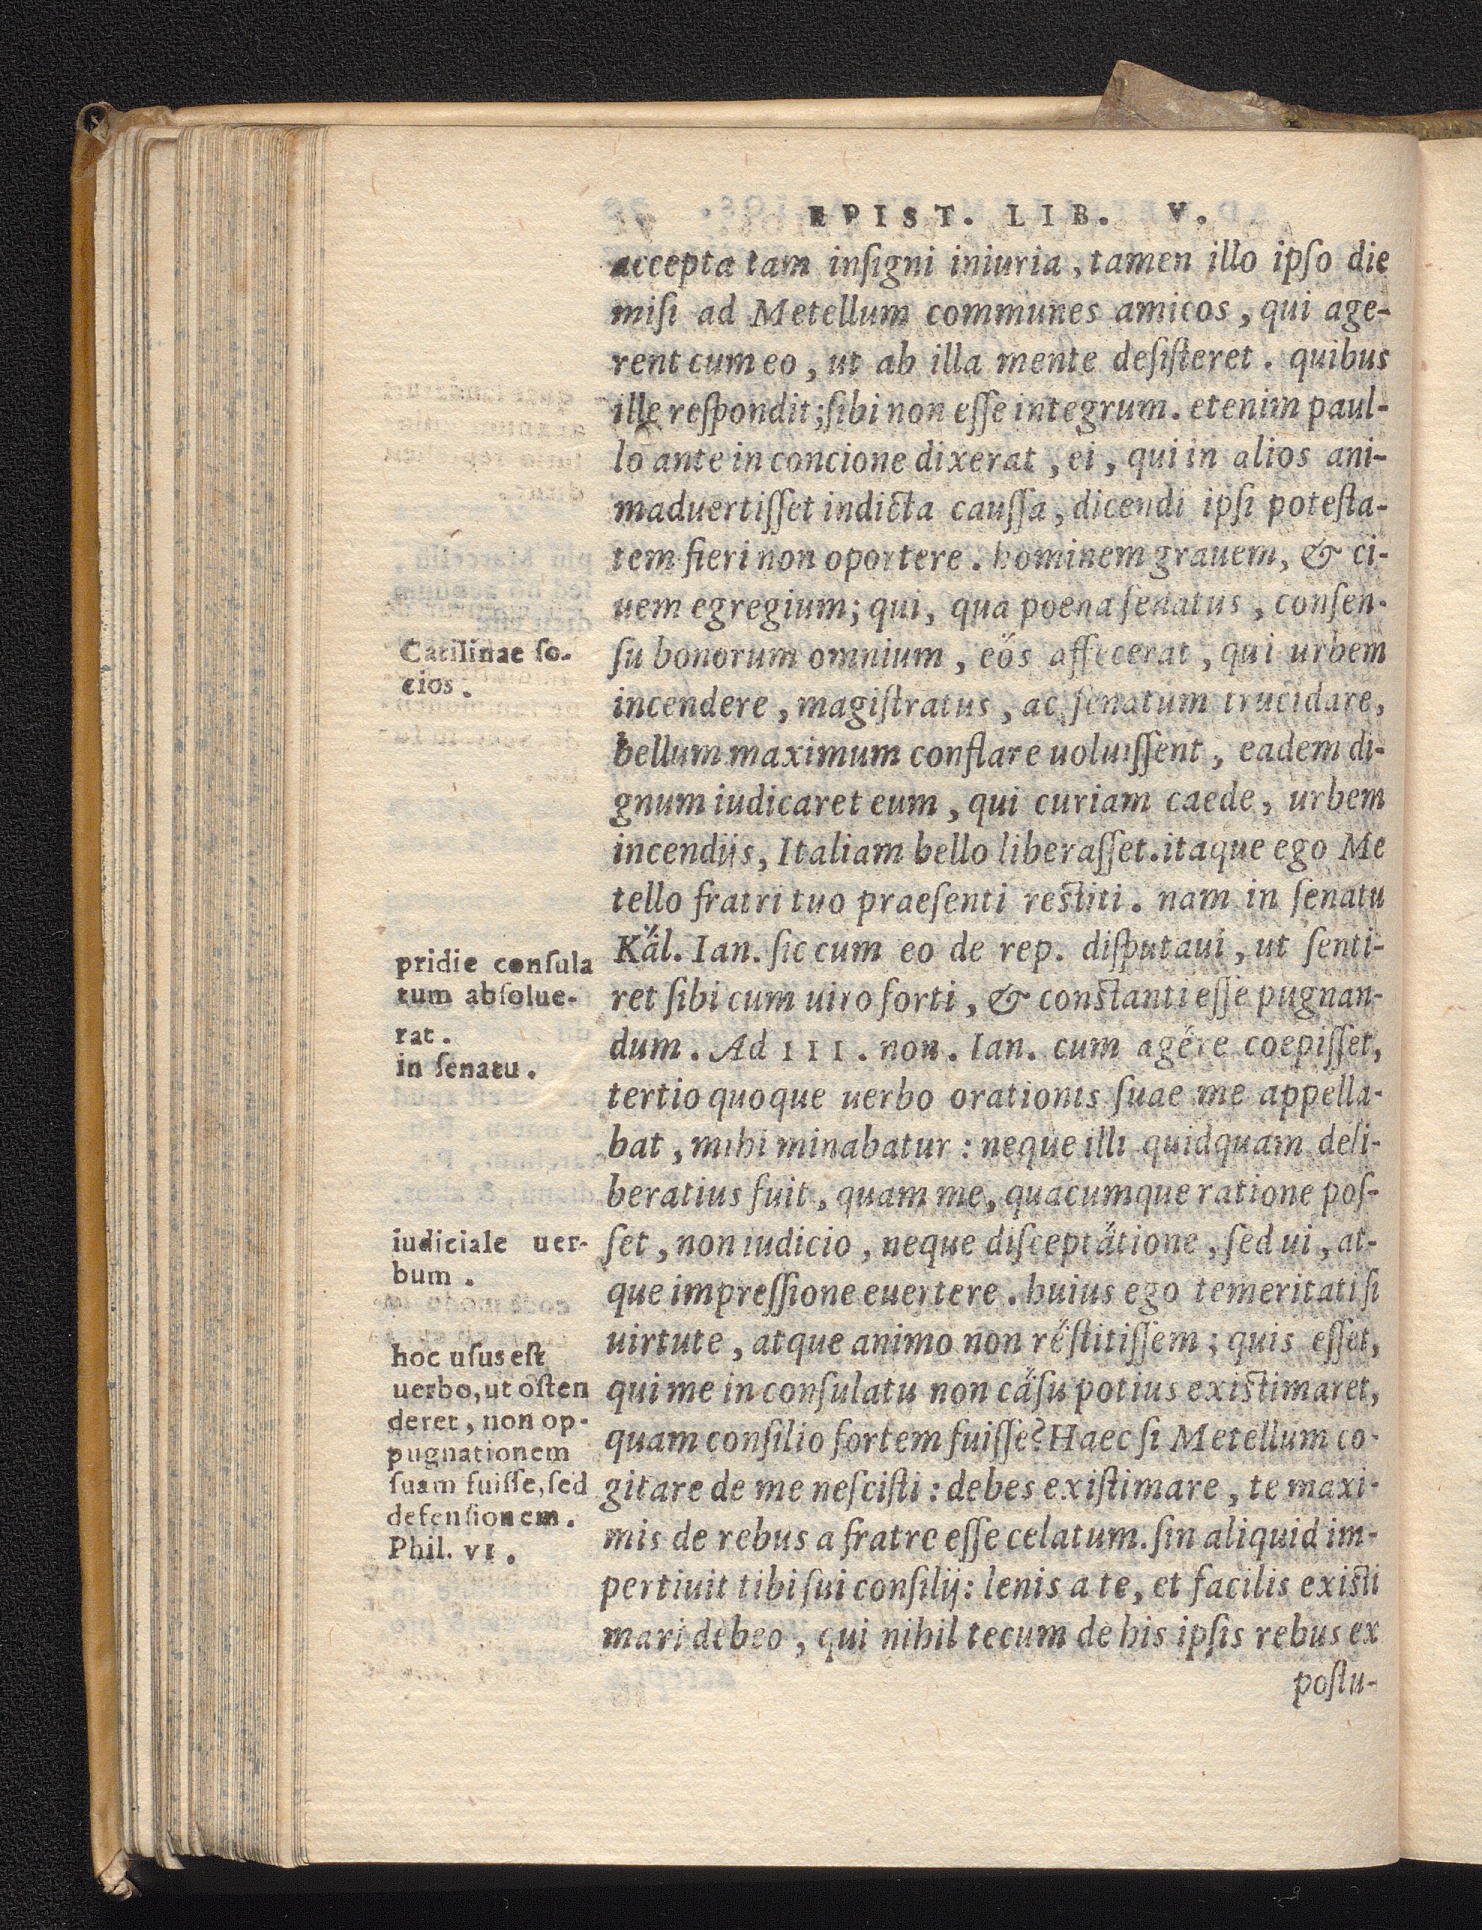 EPIST. LIB. V.
accepta tam insigni iniuria, tamen illo ipso die
misi ad Metellum communes amicos, qui age-
rent cum eo, ut ab illa mente desisteret. quibus
ille respondit; sibi non esse integrum. etenim paul-
lo ante in concione dixerat, ei, qui in alios ani-
maduertisset indicta caussa, dicendi ipsi potesta-
tem fieri non oportere. hominem grauem, & ci-
uem egregium; qui, qua poena senatus, consen-
su bonorum omnium, eo̎s affecerat, qui urbem
incendere, magistratus, ac senatum trucidare,
bellum maximum conflare uoluissent, eadem di-
gnum iudicaret eum, qui curiam caede, urbem
incendijs, Italiam bello liberasset. itaque ego Me
tello fratri tuo praesenti restiti. nam in senatu
Ka̎l. Ian. sic cum eo de rep. disputaui, ut senti-
ret sibi cum uiro forti, & constanti esse pugnan-
dum. Ad III. non. Ian. cum age̎re coepisset,
tertio quoque uerbo orationis suae me appella-
bat, mihi minabatur: neque illi quidquam deli-
beratius fuit, quam me, quacumque ratione pos-
set, non iudicio, neque discepta̎tione, sed ui, at-
que impressione euertere. huius ego temeritati si
uirtute, atque animo non re̎stitissem; quis esset,
qui me in consulatu non ca̎su potius existimaret,
quam consilio fortem fuisse? Haec si Metellum co-
gitare de me nescisti: debes existimare, te maxi-
mis de rebus a fratre esse celatum. sin aliquid im-
pertiuit tibi sui consilij: lenis a te, et facilis existi
mari debeo, qui nihil tecum de his ipsis rebus ex
postu-
Catilinae so-
cios.
pridie consula
tum absolue-
rat.
in senatu.
iudiciale uer-
bum.
hoc usus est
uerbo, ut osten
deret, non op-
pugnationem
suam fuisse, sed
defensionem.
Phil. VI.